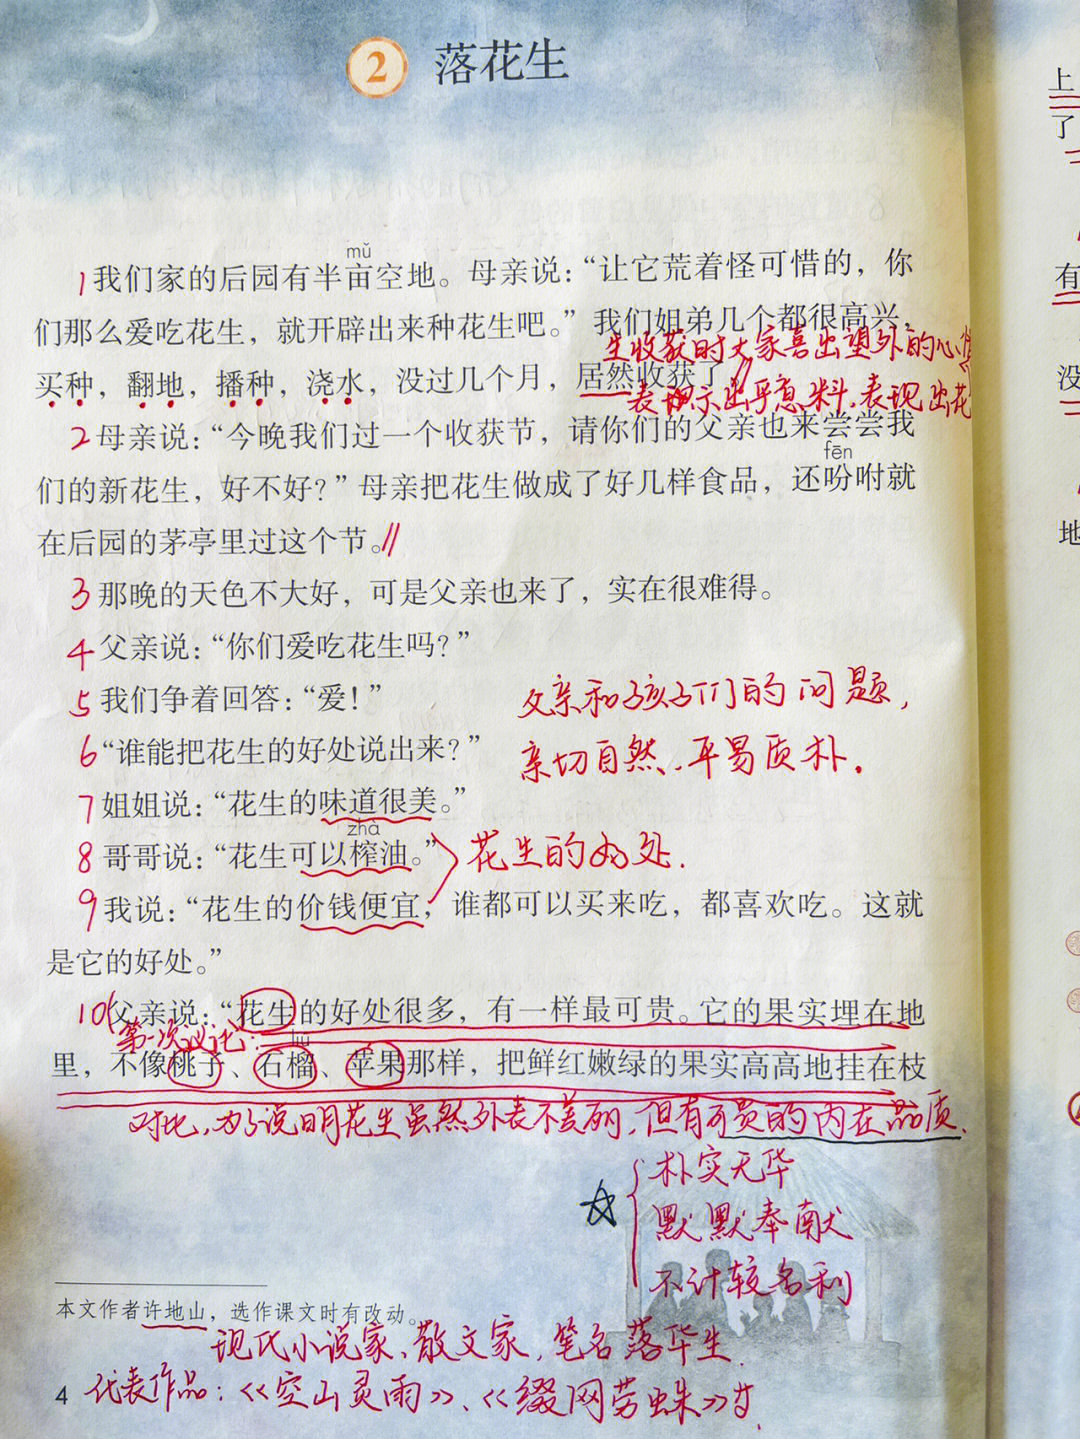 2 落花生
mǔ
1我们家的后园有半亩空地。母亲说：“让它荒着怪可惜的，你
们那么爱吃花生，就开辟出来种花生吧。”我们姐弟几个都很高兴，
生收获时大家喜出望外的心情
买种，翻地，播种，浇水，没过几个月，居然收获了//
表示出乎意料。表现出花
2母亲说：“今晚我们过一个收获节，请你们的父亲也来尝尝我
fēn
们的新花生，好不好？”母亲把花生做成了好几样食品，还吩咐就
在后园的茅亭里过这个节。//
3那晚的天色不大好，可是父亲也来了，实在很难得。
4父亲说：“你们爱吃花生吗？”
5我们争着回答：“爱！”
父亲和孩子们的问题，
6“谁能把花生的好处说出来？”
亲切自然，平易质朴。
7姐姐说：“花生的味道很美。”
zhà
8哥哥说：“花生可以榨油。”
花生的好处.
9我说：“花生的价钱便宜，谁都可以买来吃，都喜欢吃。这就
是它的好处。”
10父亲说：“花生的好处很多，有一样最可贵。它的果实埋在地
第一次议论：
liú
里，不像桃子、石榴、苹果那样，把鲜红嫩绿的果实高高地挂在枝
对比，为了说明花生虽然外表不美丽，但有可贵的内在品质.
朴实无华
默默奉献
不计较名利
本文作者许地山，选作课文时有改动。
现代小说家、散文家，笔名落华生.
4 代表作品：《空山灵雨》、《缀网劳蛛》等.
上
了
有
没
地